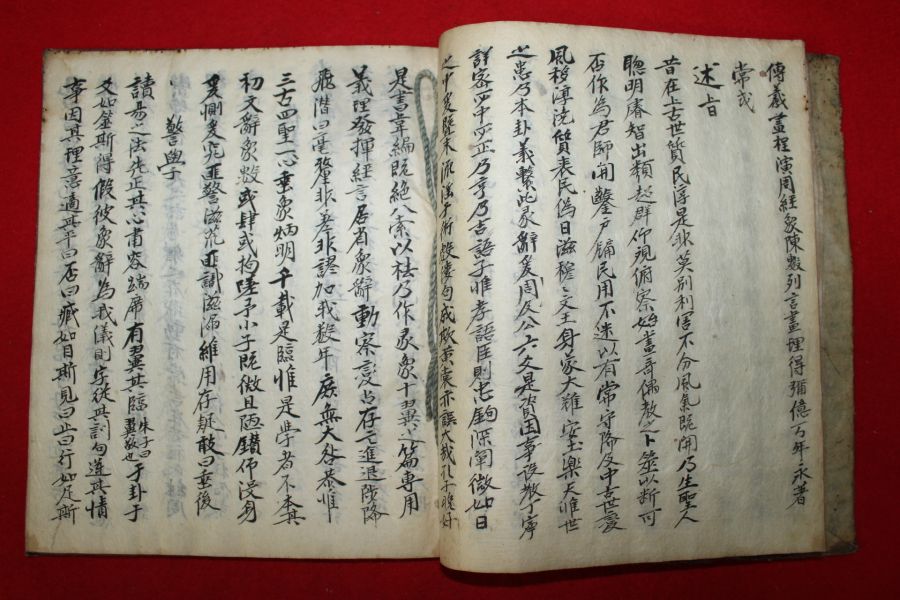 傳羲畫程演周經象陳數列言盡理得彌億万年永著
常式
述旨
昔在上古世質民淳是非莫別利害不分風氣既開乃生聖人
聰明睿智出類超群仰观俯察始畫奇偶教之卜筮以斷可
否作為君師開鑿戶牖民用不迷以有常守降及中古世變
風移淳澆質喪民偽日滋穆〻文王身蒙大難安土樂天惟世
之患乃本卦義繫此彖辭爰周及公六爻是資因事設教丁寧
詳密必中必正乃亨乃吉語子惟孝語臣則忠鉤深闡微如日
之中爰曁末流淫于術數僂句成欺黃裳亦誤大哉孔子晚好
是書韋編既絕八索以祛乃作彖象十翼之篇專用
義理發揮經言居省象辭動察變占存亡進退陟降
飛潛曰毫釐非差非謬加我數年庶無大咎恭惟
三古四聖一心垂象炳明千載是臨惟是學者不本其
初文辭象數或肆或拘嗟予小子既微且陋鑽仰沒身
奚惻奚究匪警滋荒匪識滋漏維用存疑敢曰垂後
警學
讀易之法先正其心肅容端席有翼其臨朱子曰翼敬也于卦于
爻如筮斯得假彼象辭為我儀則字從其訓句逆其情
事因其理意適其平曰否曰臧如目斯見曰止曰行如足斯